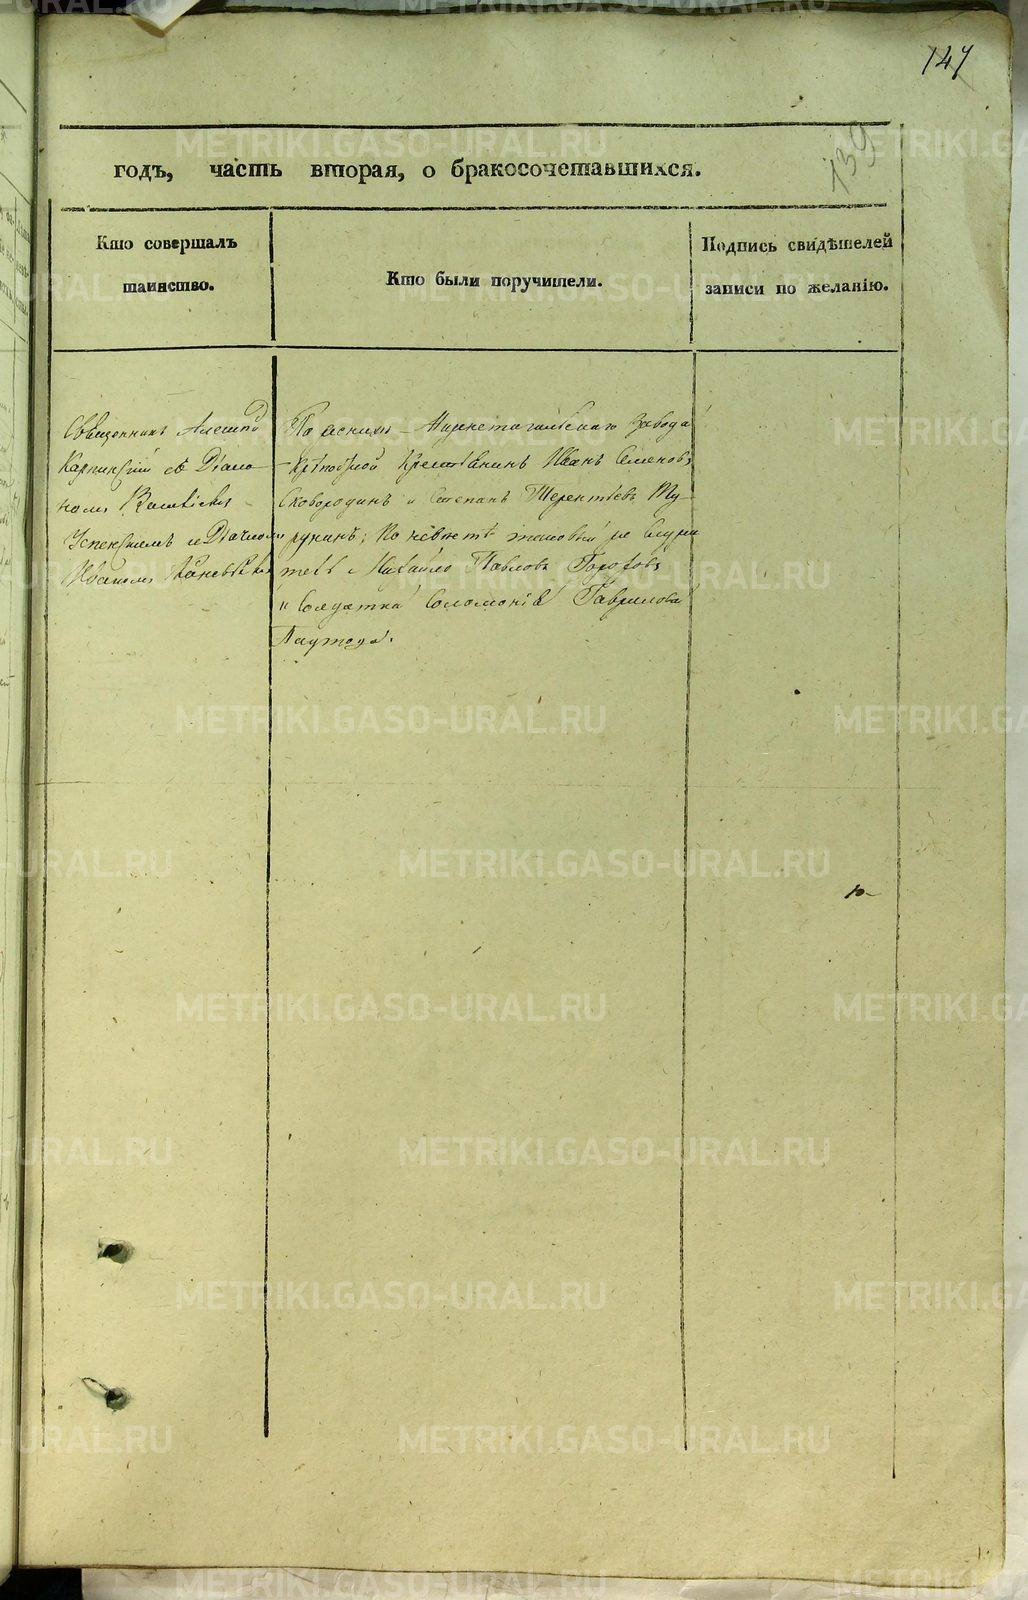 147
139
годъ, часть вторая, о бракосочетавшихся.
Кто совершалъ
таинство.
Кто были поручители.
Подпись свидѣтелей
записи по желанію.
Священникъ
Карпинскій съ Діако
номъ
Успенскимъ и Дьячкомъ
Иваномъ
По женихѣ Нижнетагильскаго завода
крѣпостной крестьянинъ Иванъ Семеновъ
Сковородинъ и Степанъ Терентьевъ
по невѣстѣ таковый же служи
тель Михайло Павловъ
и Солдатка Соломонія Гаврилова
METRIKI.GASO-URAL.RU